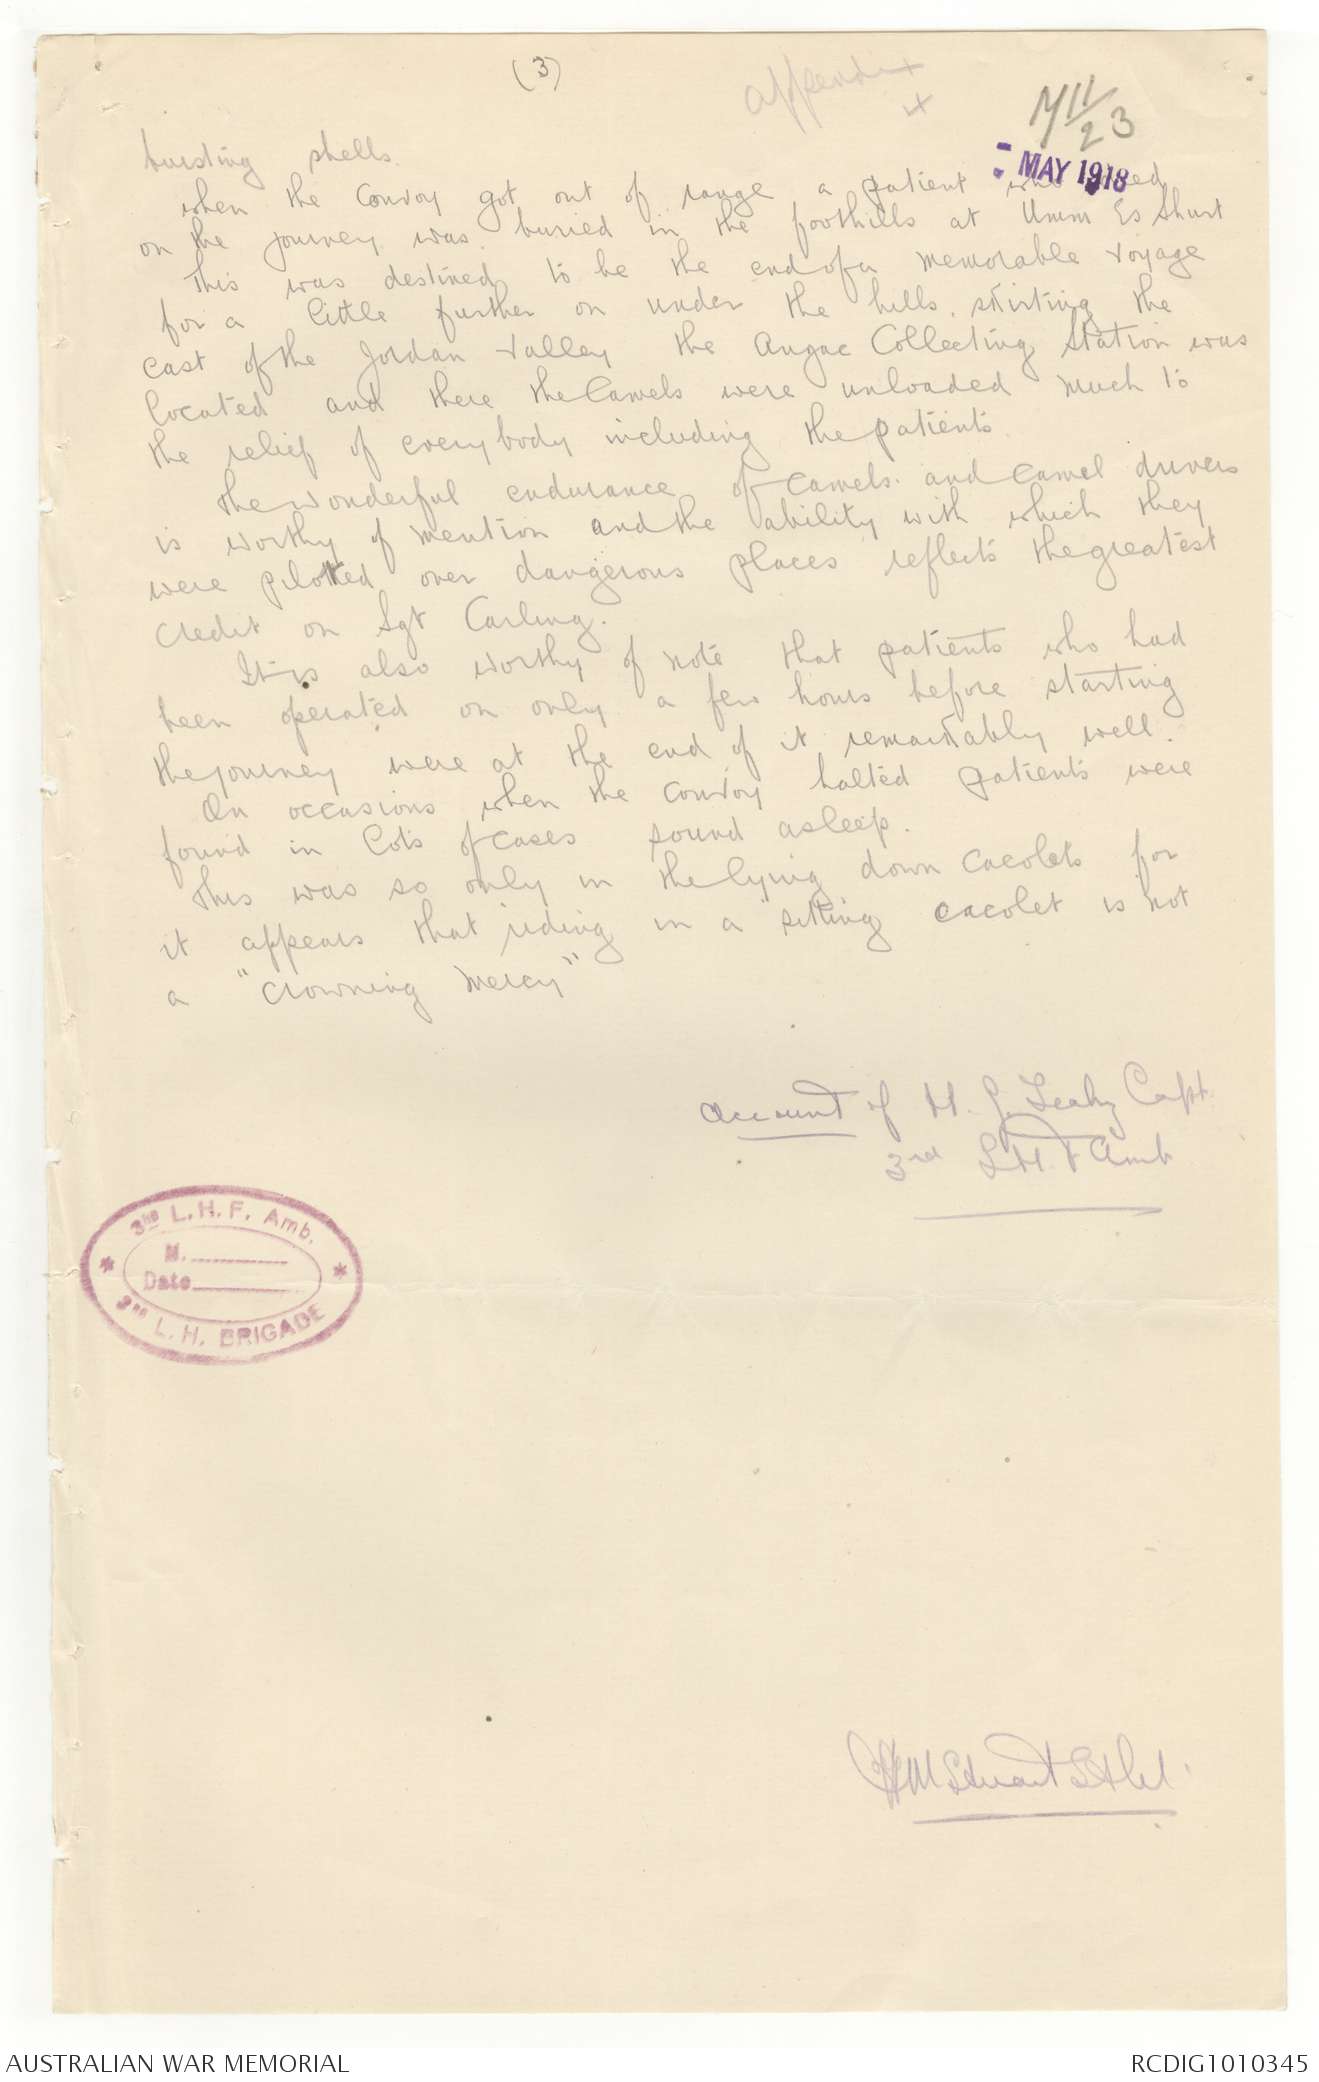 (3)
appendix
4
M11/23
MAY 1918
bursting shells.
when the Convoy got out of range a patient who died
on the journey was buried in the foothills at Umm Es Shurt
This was destined to be the end of a memorable voyage
for a little further on under the hills skirting the
east of the Jordan Valley the Anzac Collecting Station was
located and there the Camels were unloaded much to
the relief of everybody including the patients.
The wonderful endurance of Camels and Camel drivers
is worthy of mention and the ability with which they
were piloted over dangerous places reflects the greatest
credit on Sgt Carling.
It is also worthy of note that patients who had
been operated on only a few hours before starting
the journey were at the end of it remarkably well.
On occasions when the convoy halted patients were
found in lots of cases sound asleep.
This was so only in the lying down cacolets for
it appears that riding in a sitting cacolet is not
a "crowning mercy"
Account of H. J. Leahy Capt.
3rd L H F Amb
3RD L.H.F. Amb.
M.
Date
3RD L.H. BRIGADE
Stuart Lt Col.
AUSTRALIAN WAR MEMORIAL
RCDIG1010345